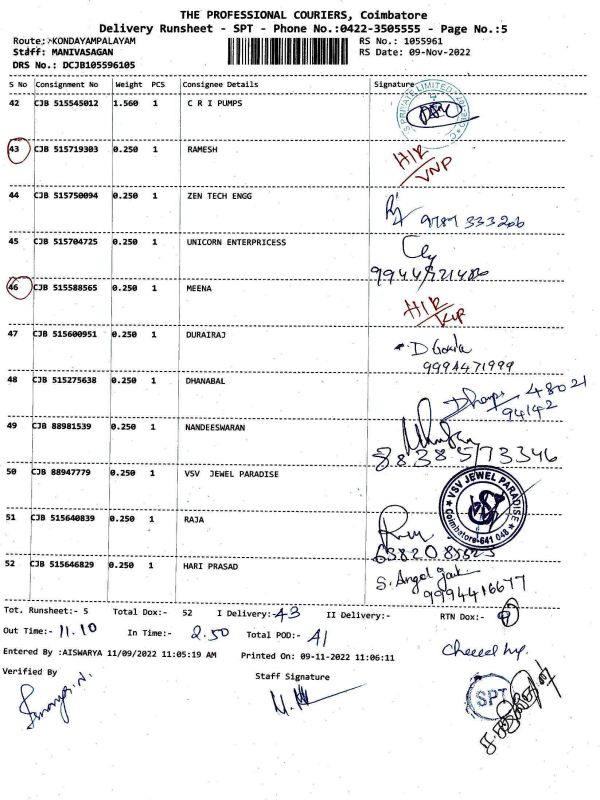 THE PROFESSIONAL COURIERS, Coimbatore
Delivery Runsheet - SPT - Phone No.:0422-3505555 - Page No.:5
Route:-KONDAYAMPALAYAM RS No.: 1055961
Staff: MANIVASAGAN RS Date: 09-Nov-2022
DRS No.: DCJB105596105
S No Consignment No Weight PCS Consignee Details Signature
42 CJB 515545012 1.560 1 C R I PUMPS
43 CJB 515719303 0.250 1 RAMESH
44 CJB 515750094 0.250 1 ZEN TECH ENGG 9787 333266
45 CJB 515704725 0.250 1 UNICORN ENTERPRICESS
46 CJB 515588565 0.250 1 MEENA
47 CJB 515600951 0.250 1 DURAIRAJ
9994471999
48 CJB 515275638 0.250 1 DHANABAL 48021
94142
49 CJB 88981539 0.250 1 NANDEESWARAN
50 CJB 88947779 0.250 1 VSV JEWEL PARADISE
VSV JEWEL PARADISE
Coimbatore-641 048
51 CJB 515640839 0.250 1 RAJA
52 CJB 515646829 0.250 1 HARI PRASAD
9994416677
Tot. Runsheet:- 5 Total Dox:- 52 I Delivery:- 43 II Delivery:- RTN Dox:- 9
Out Time:- 11.10 In Time:- 2.50 Total POD:- 41
Entered By :AISWARYA 11/09/2022 11:05:19 AM Printed On: 09-11-2022 11:06:11
Verified By Staff Signature
SPT